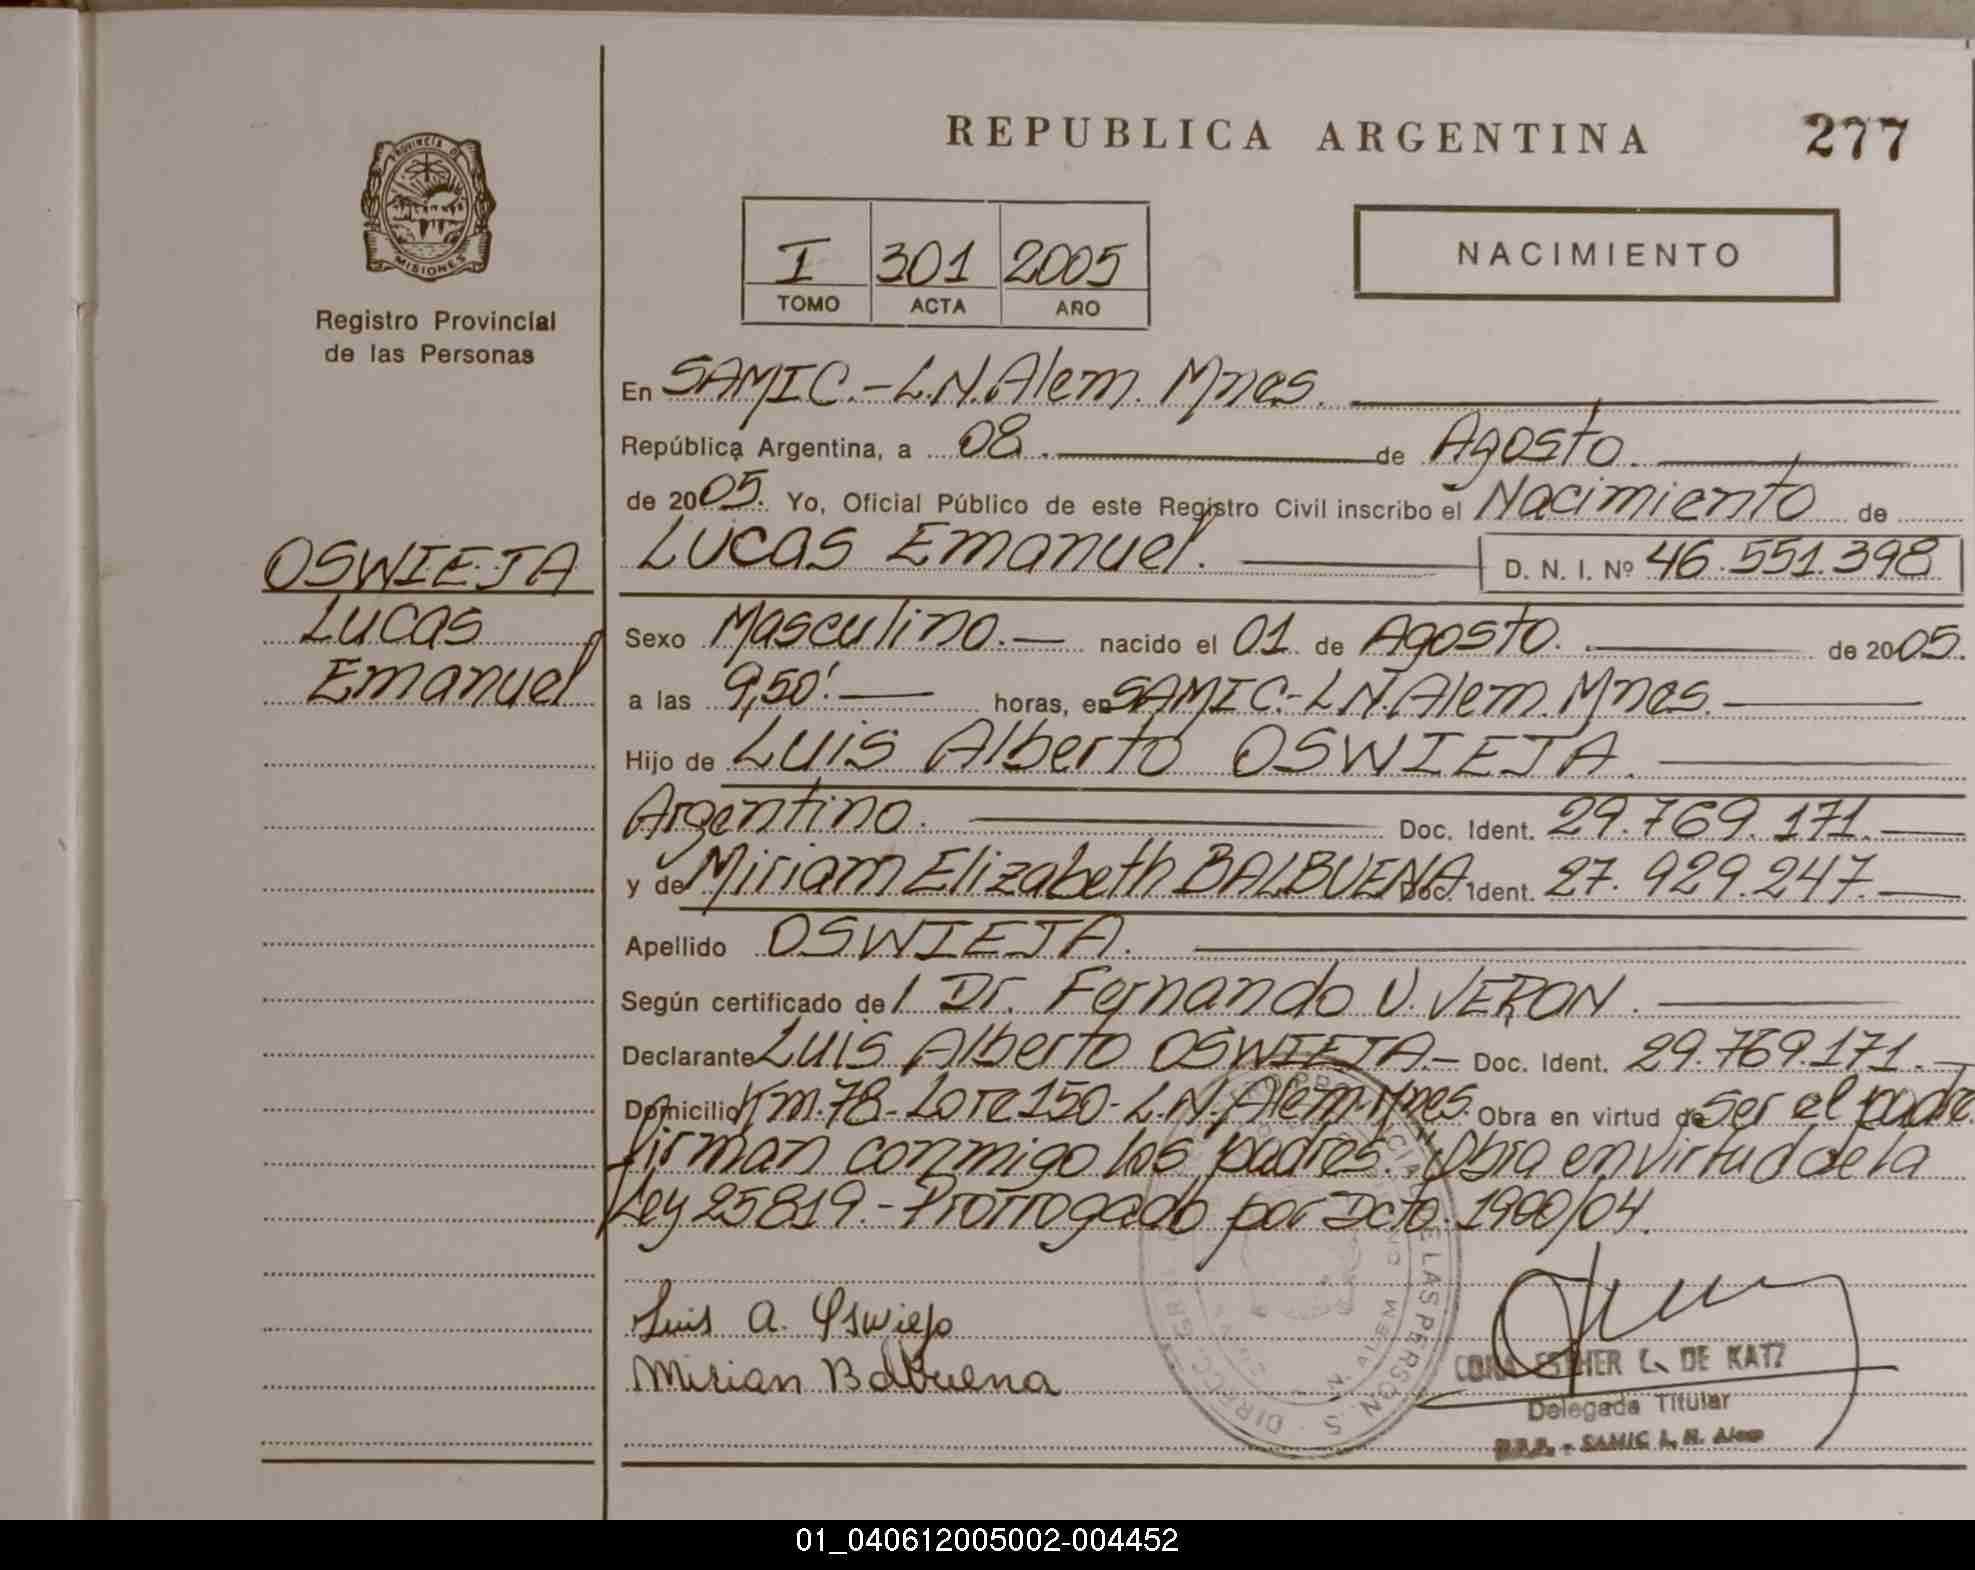 PROVINCIA DE
MISIONES
Registro Provincial
de las Personas
OSWIEJA
Lucas
Emanuel
REPUBLICA ARGENTINA 277
I 301 2005
TOMO ACTA AÑO
NACIMIENTO
En SAMIC.-L.N.Alem. Mnes.
República Argentina, a 08. de Agosto.
de 2005. Yo, Oficial Público de este Registro Civil inscribo el Nacimiento de
Lucas Emanuel. D. N. I. Nº 46.551.398
Sexo Masculino.- nacido el 01. de Agosto. de 2005.
a las 9,50'.- horas, en SAMIC.-L.N.Alem.Mnes.
Hijo de Luis Alberto OSWIEJA.
Argentino. Doc. Ident. 29.769.171.
y de Miriam Elizabeth BALBUENA Doc. Ident. 27.929.247.
Apellido OSWIEJA.
Según certificado de / Dr. Fernando V. VERON.
Declarante Luis Alberto OSWIEJA.- Doc. Ident. 29.769.171.-
Domicilio Km.78-Lote 150-L.N.Alem-Mnes. Obra en virtud de Ser el padre
firman conmigo los padres. "Obra en virtud de la
Ley 25819.-Prorrogado por Dcto. 1900/04.
Luis A. Oswieja
Mirian Balbuena
ESTHER C. DE KATZ
Delegada Titular
R.P.P. - SAMIC L. N. Alem
01_040612005002-004452